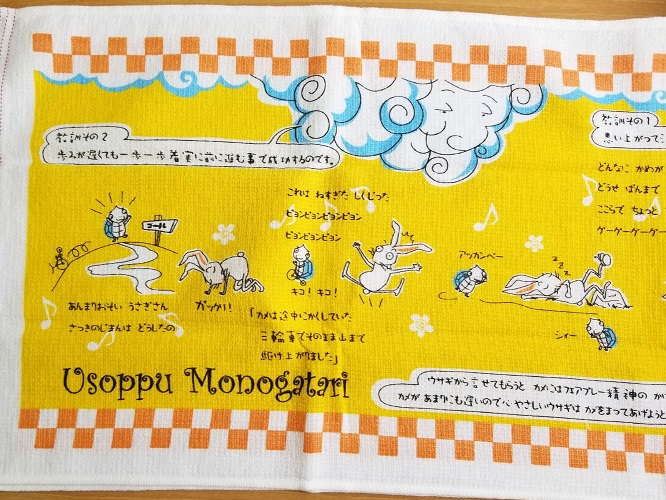 教訓その1
思い上がって
どんなに かめが
どうせ ばんまで
ここらで ちょっと
グーグーグーグー
教訓その2
歩みが遅くても一歩一歩着実に前に進む事で成功するのです。
これは ねすぎた しくじった
ピョンピョンピョンピョン
ピョンピョンピョンピョン
アッカンベー
zzz
シィー
キコ! キコ!
「カメは途中にかくしていた
三輪車でそのまま山まで
駆け上がりました」
ゴール
ガックリ!
あんまりおそい うさぎさん
さっきのじまんは どうしたの
Usoppu Monogatari
ウサギから言せてもらうと カメにはフェアプレー精神の か
カメがあまりにも遅いので心やさしいウサギは カメをまってあげよう